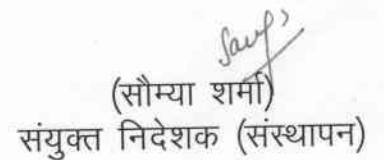 (सौम्या शर्मा)
संयुक्त निदेशक (संस्थापन)